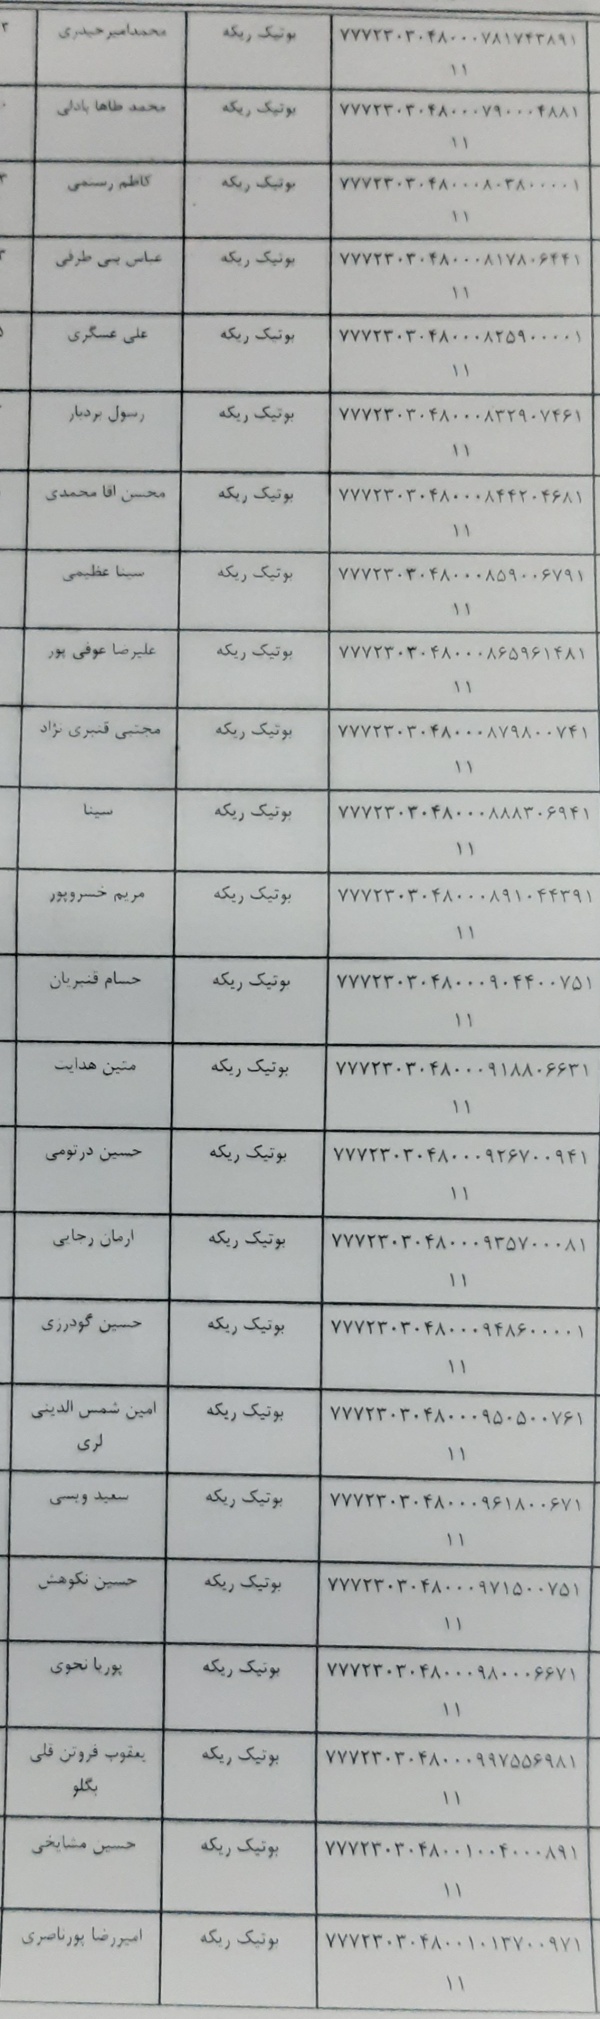 ۷۷۷۲۳۰۳۰۴۸۰۰۰۷۸۱۷۴۳۸۹۱ بوتیک ریکه محمدامیرحیدری
۱۱
۷۷۷۲۳۰۳۰۴۸۰۰۰۷۹۰۰۰۴۸۸۱ بوتیک ریکه محمد طاها بادلی
۱۱
۷۷۷۲۳۰۳۰۴۸۰۰۰۸۰۳۸۰۰۰۰۱ بوتیک ریکه کاظم رستمی
۱۱
۷۷۷۲۳۰۳۰۴۸۰۰۰۸۱۷۸۰۶۴۴۱ بوتیک ریکه عباس بنی طرفی
۱۱
۷۷۷۲۳۰۳۰۴۸۰۰۰۸۲۵۹۰۰۰۰۱ بوتیک ریکه علی عسگری
۱۱
۷۷۷۲۳۰۳۰۴۸۰۰۰۸۳۲۹۰۷۴۶۱ بوتیک ریکه رسول بردبار
۱۱
۷۷۷۲۳۰۳۰۴۸۰۰۰۸۴۴۲۰۴۶۸۱ بوتیک ریکه محسن اقا محمدی
۱۱
۷۷۷۲۳۰۳۰۴۸۰۰۰۸۵۹۰۰۶۷۹۱ بوتیک ریکه سینا عظیمی
۱۱
۷۷۷۲۳۰۳۰۴۸۰۰۰۸۶۵۹۶۱۴۸۱ بوتیک ریکه علیرضا عوفی پور
۱۱
۷۷۷۲۳۰۳۰۴۸۰۰۰۸۷۹۸۰۰۷۴۱ بوتیک ریکه مجتبی قنبری نژاد
۱۱
۷۷۷۲۳۰۳۰۴۸۰۰۰۸۸۸۳۰۶۹۴۱ بوتیک ریکه سینا
۱۱
۷۷۷۲۳۰۳۰۴۸۰۰۰۸۹۱۰۴۴۳۹۱ بوتیک ریکه مریم خسروپور
۱۱
۷۷۷۲۳۰۳۰۴۸۰۰۰۹۰۴۴۰۰۷۵۱ بوتیک ریکه حسام قنبریان
۱۱
۷۷۷۲۳۰۳۰۴۸۰۰۰۹۱۸۸۰۶۶۳۱ بوتیک ریکه متین هدایت
۱۱
۷۷۷۲۳۰۳۰۴۸۰۰۰۹۲۶۷۰۰۹۴۱ بوتیک ریکه حسین درتومی
۱۱
۷۷۷۲۳۰۳۰۴۸۰۰۰۹۳۵۷۰۰۰۸۱ بوتیک ریکه ارمان رجایی
۱۱
۷۷۷۲۳۰۳۰۴۸۰۰۰۹۴۸۶۰۰۰۰۱ بوتیک ریکه حسین گودرزی
۱۱
۷۷۷۲۳۰۳۰۴۸۰۰۰۹۵۰۵۰۰۷۶۱ بوتیک ریکه امین شمس الدینی
۱۱ لری
۷۷۷۲۳۰۳۰۴۸۰۰۰۹۶۱۸۰۰۶۷۱ بوتیک ریکه سعید ویسی
۱۱
۷۷۷۲۳۰۳۰۴۸۰۰۰۹۷۱۵۰۰۷۵۱ بوتیک ریکه حسین نکوهش
۱۱
۷۷۷۲۳۰۳۰۴۸۰۰۰۹۸۰۰۰۶۶۷۱ بوتیک ریکه پوریا نحوی
۱۱
۷۷۷۲۳۰۳۰۴۸۰۰۰۹۹۷۵۵۶۹۸۱ بوتیک ریکه یعقوب فروتن قلی
۱۱ بگلو
۷۷۷۲۳۰۳۰۴۸۰۰۱۰۰۴۰۰۰۸۹۱ بوتیک ریکه حسین مشایخی
۱۱
۷۷۷۲۳۰۳۰۴۸۰۰۱۰۱۳۷۰۰۹۷۱ بوتیک ریکه امیررضا پورناصری
۱۱